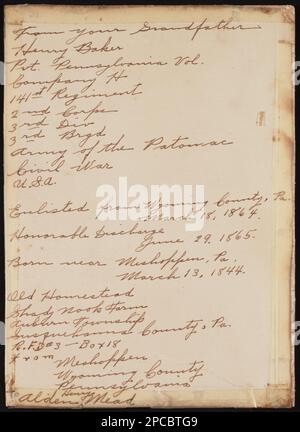 From your Grandfather
Henry Baker
Pvt. Pennsylvania Vol.
Company H
141st Regiment
2nd Corps
3rd Div
3rd Brgd
Army of the Potomac
Civil War
U.S.A.
Enlisted from Wyoming County, Pa.
March 18, 1864.
Honorable Discharge
June 29, 1865.
Born near Meshoppen, Pa.
March 13, 1844.
Old Homestead
Shad Nook Farm
Auburn Township
Susquehanna County, Pa.
R.F.D #3 - Box 18
From
Meshoppen
Wyoming County
Pennsylvania
Henry
Alden Mead
alamy
Image ID: 2PCBTG9
www.alamy.com